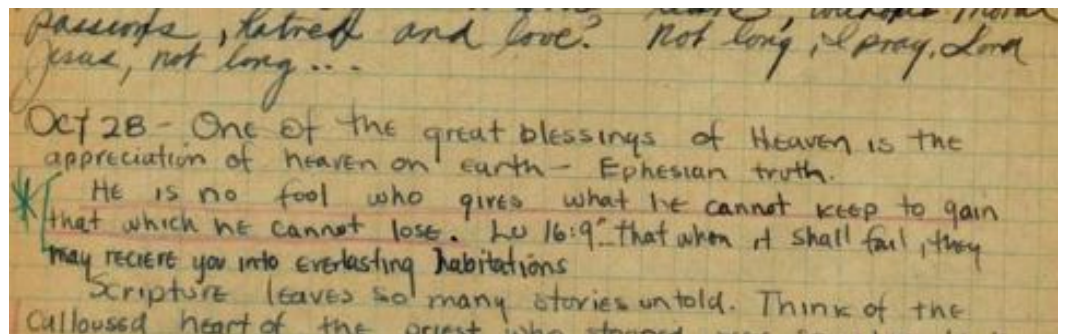 passions, hatred and love? Not long, I pray, Lord
Jesus, not long...
Oct 28 - One of the great blessings of Heaven is the
appreciation of heaven on earth - Ephesian truth.
He is no fool who gives what he cannot keep to gain
that which he cannot lose. Lu 16:9 "that when it shall fail, they
may receive you into everlasting habitations
Scripture leaves so many stories untold. Think of the
calloused heart of the priest who stopped